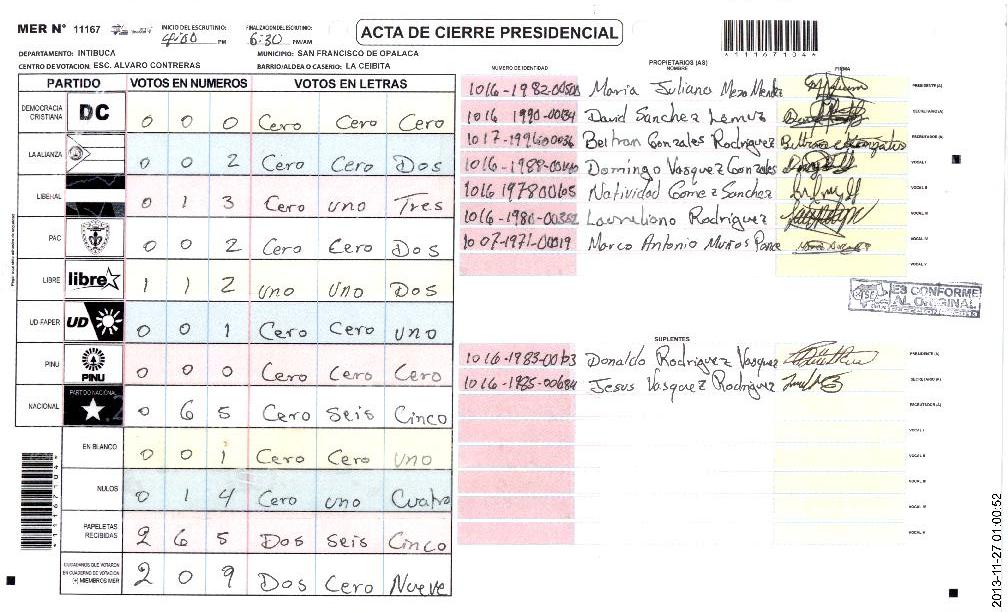 MER N° 11167 INICIO DEL ESCRUTINIO: 4:00 PM FINALIZACION DEL ESCRUTINIO: 6:30 PM/AM ACTA DE CIERRE PRESIDENCIAL
DEPARTAMENTO: INTIBUCA MUNICIPIO: SAN FRANCISCO DE OPALACA
CENTRO DE VOTACION: ESC. ALVARO CONTRERAS BARRIO/ALDEA O CASERIO: LA CEIBITA
PARTIDO VOTOS EN NUMEROS VOTOS EN LETRAS
DEMOCRACIA CRISTIANA DC 0 0 0 Cero Cero Cero
LA ALIANZA 0 0 2 Cero Cero Dos
LIBERAL 0 1 3 Cero uno Tres
PAC 0 0 2 Cero Cero Dos
LIBRE libre 1 1 2 uno uno Dos
UD-FAPER UD 0 0 1 Cero Cero uno
PINU PINU 0 0 0 Cero Cero Cero
NACIONAL PARTIDO NACIONAL 0 6 5 Cero Seis Cinco
EN BLANCO 0 0 1 Cero Cero uno
NULOS 0 1 4 Cero uno Cuatro
PAPELETAS RECIBIDAS 2 6 5 Dos Seis Cinco
CIUDADANOS QUE VOTARON EN CUADERNO DE VOTACION (+) MIEMBROS MER 2 0 9 Dos Cero Nueve
*11167104*
PROPIETARIOS (AS)
NUMERO DE IDENTIDAD NOMBRE FIRMA
Maria Juliana Meza Mendez PRESIDENTE (A)
1016 1990-00134 David Sanchez Lemuz SECRETARIO (A)
Beltran Gonzales Rodriguez ESCRUTADOR (A)
Domingo Vasquez Gonzales VOCAL I
1016 1978 00165 Natividad Gomez Sanchez VOCAL II
Laureliano Rodriguez VOCAL III
1007-1971-00019 Marco Antonio Muños Ponce VOCAL IV
VOCAL V
ES CONFORME
AL ORIGINAL
SUPLENTES
Donaldo Rodriguez Vasquez PRESIDENTE (A)
1016-1985-00684 Jesus Vasquez Rodriguez SECRETARIO (A)
ESCRUTADOR (A)
VOCAL I
VOCAL II
VOCAL III
VOCAL IV
VOCAL V
2013-11-27 01:00:52